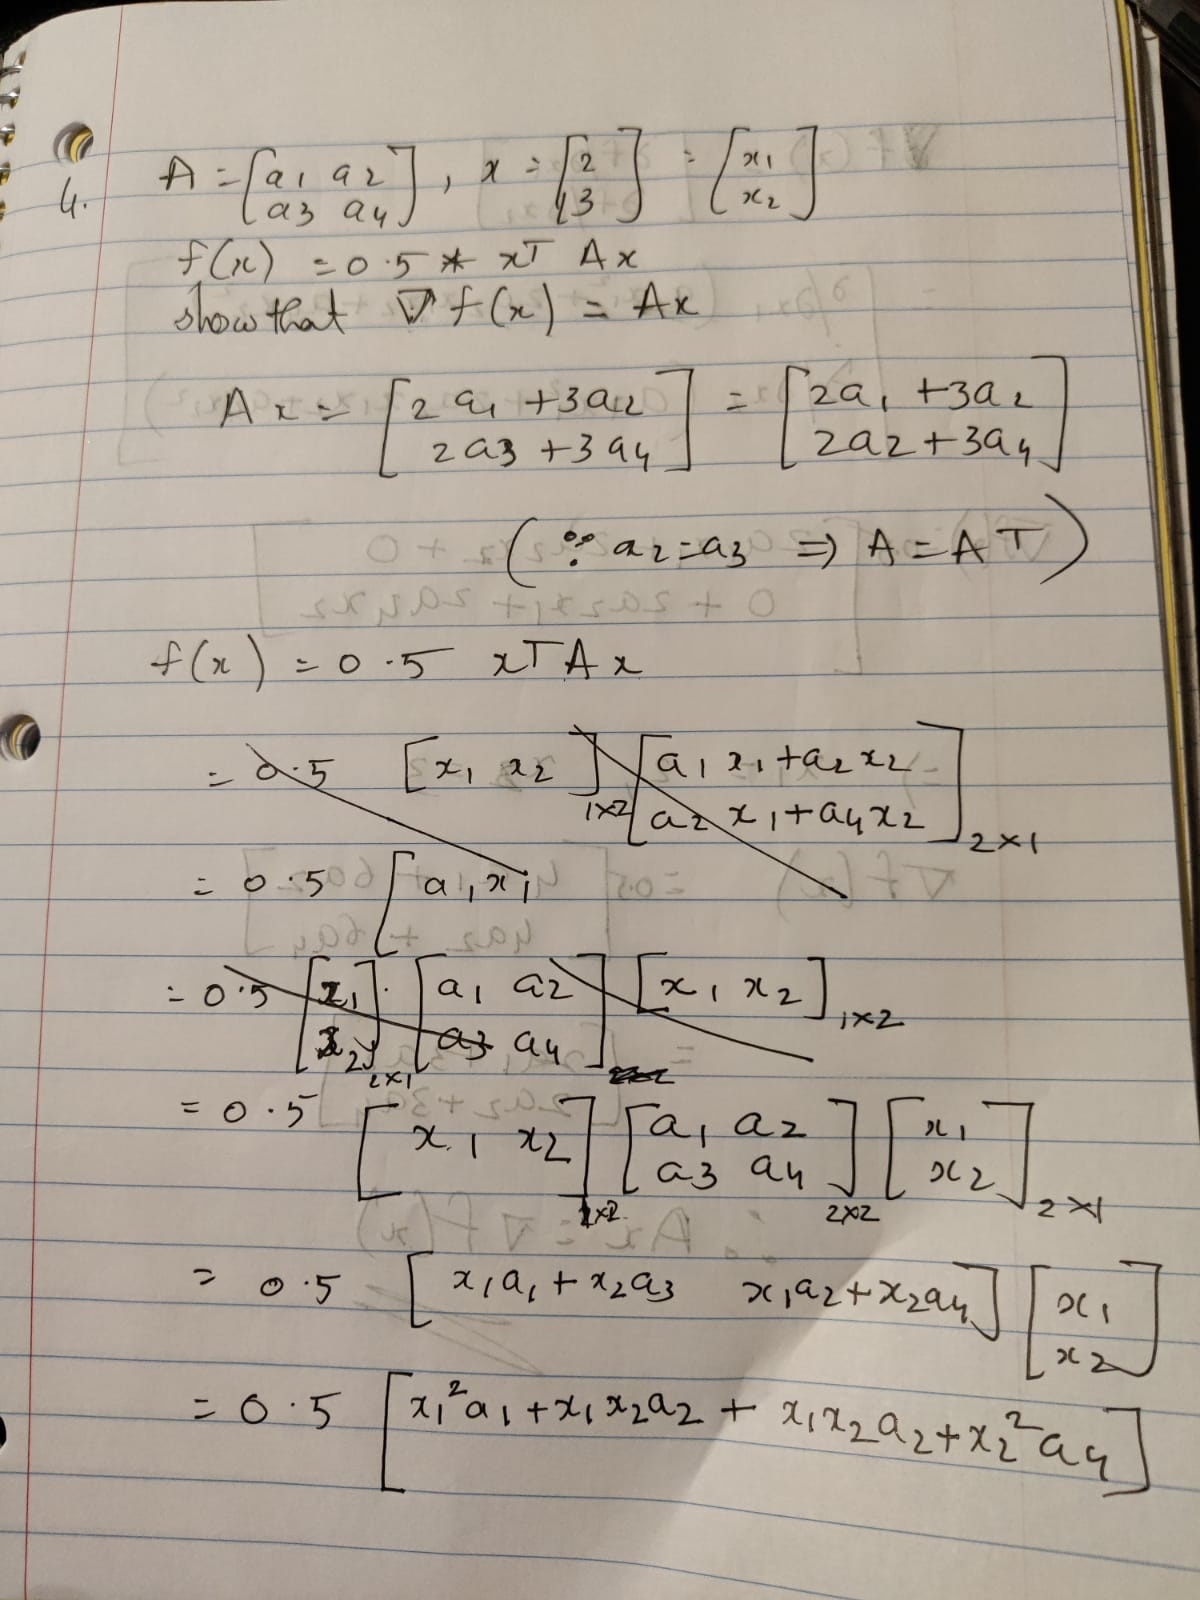 4. A = [a1 a2 ; a3 a4], x = [2 ; 3] = [x1 ; x2]
f(x) = 0.5 * xT Ax
show that ∇f(x) = Ax
Ax = [2a1 + 3a2 ; 2a3 + 3a4] = [2a1 + 3a2 ; 2a2 + 3a4]
(∵ a2 = a3 ⇒ A = AT)
f(x) = 0.5 xTAx
= 0.5 [x1 x2]1×2 [a1x1 + a2x2 ; a2x1 + a4x2]2×1
= 0.5 [a1x1
= 0.5 [x1 ; x2]2×1 · [a1 a2 ; a3 a4] [x1 x2]1×2
= 0.5 [x1 x2]1×2 [a1 a2 ; a3 a4]2×2 [x1 ; x2]2×1
= 0.5 [x1a1 + x2a3 x1a2 + x2a4] [x1 ; x2]
= 0.5 [x1²a1 + x1x2a2 + x1x2a2 + x2²a4]